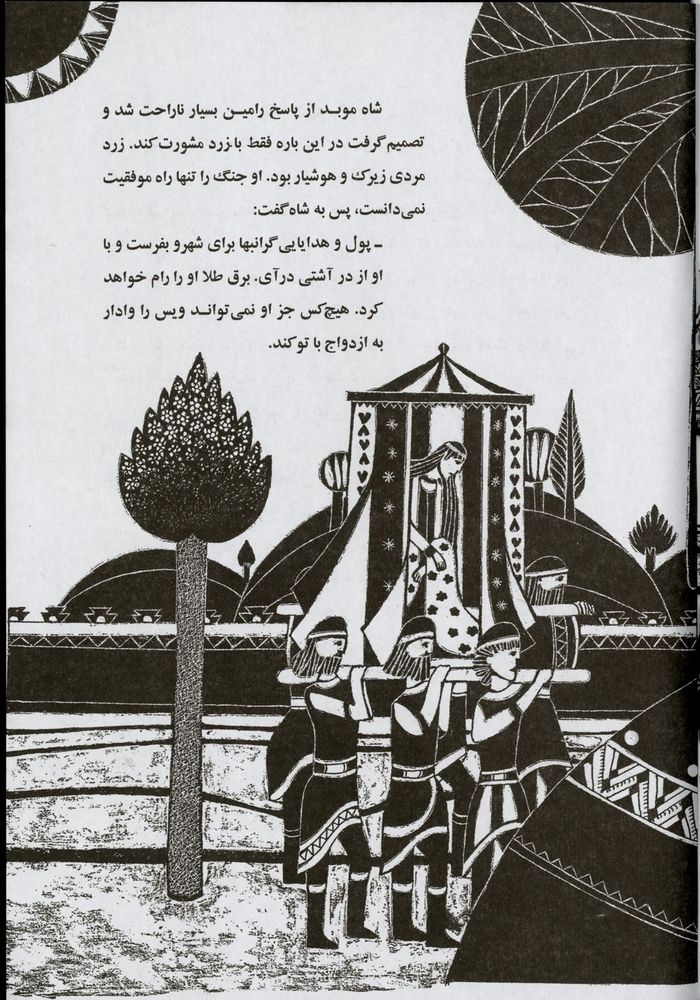 شاه موبـد از پاسخ رامیـن بسیار ناراحت شد و
تصمیم گرفت در این باره فقط با زرد مشورت کند. زرد
مردی زیرک و هوشیار بود. او جنگ را تنها راه موفقیت
نمی‌دانست، پس به شاه گفت:
ـ پول و هدایایی گرانبها برای شهرو بفرست و با
او از در آشتی درآی. برق طلا او را رام خواهد
کرد. هیچ‌کس جز او نمی‌توانـد ویس را وادار
به ازدواج با تو کند.